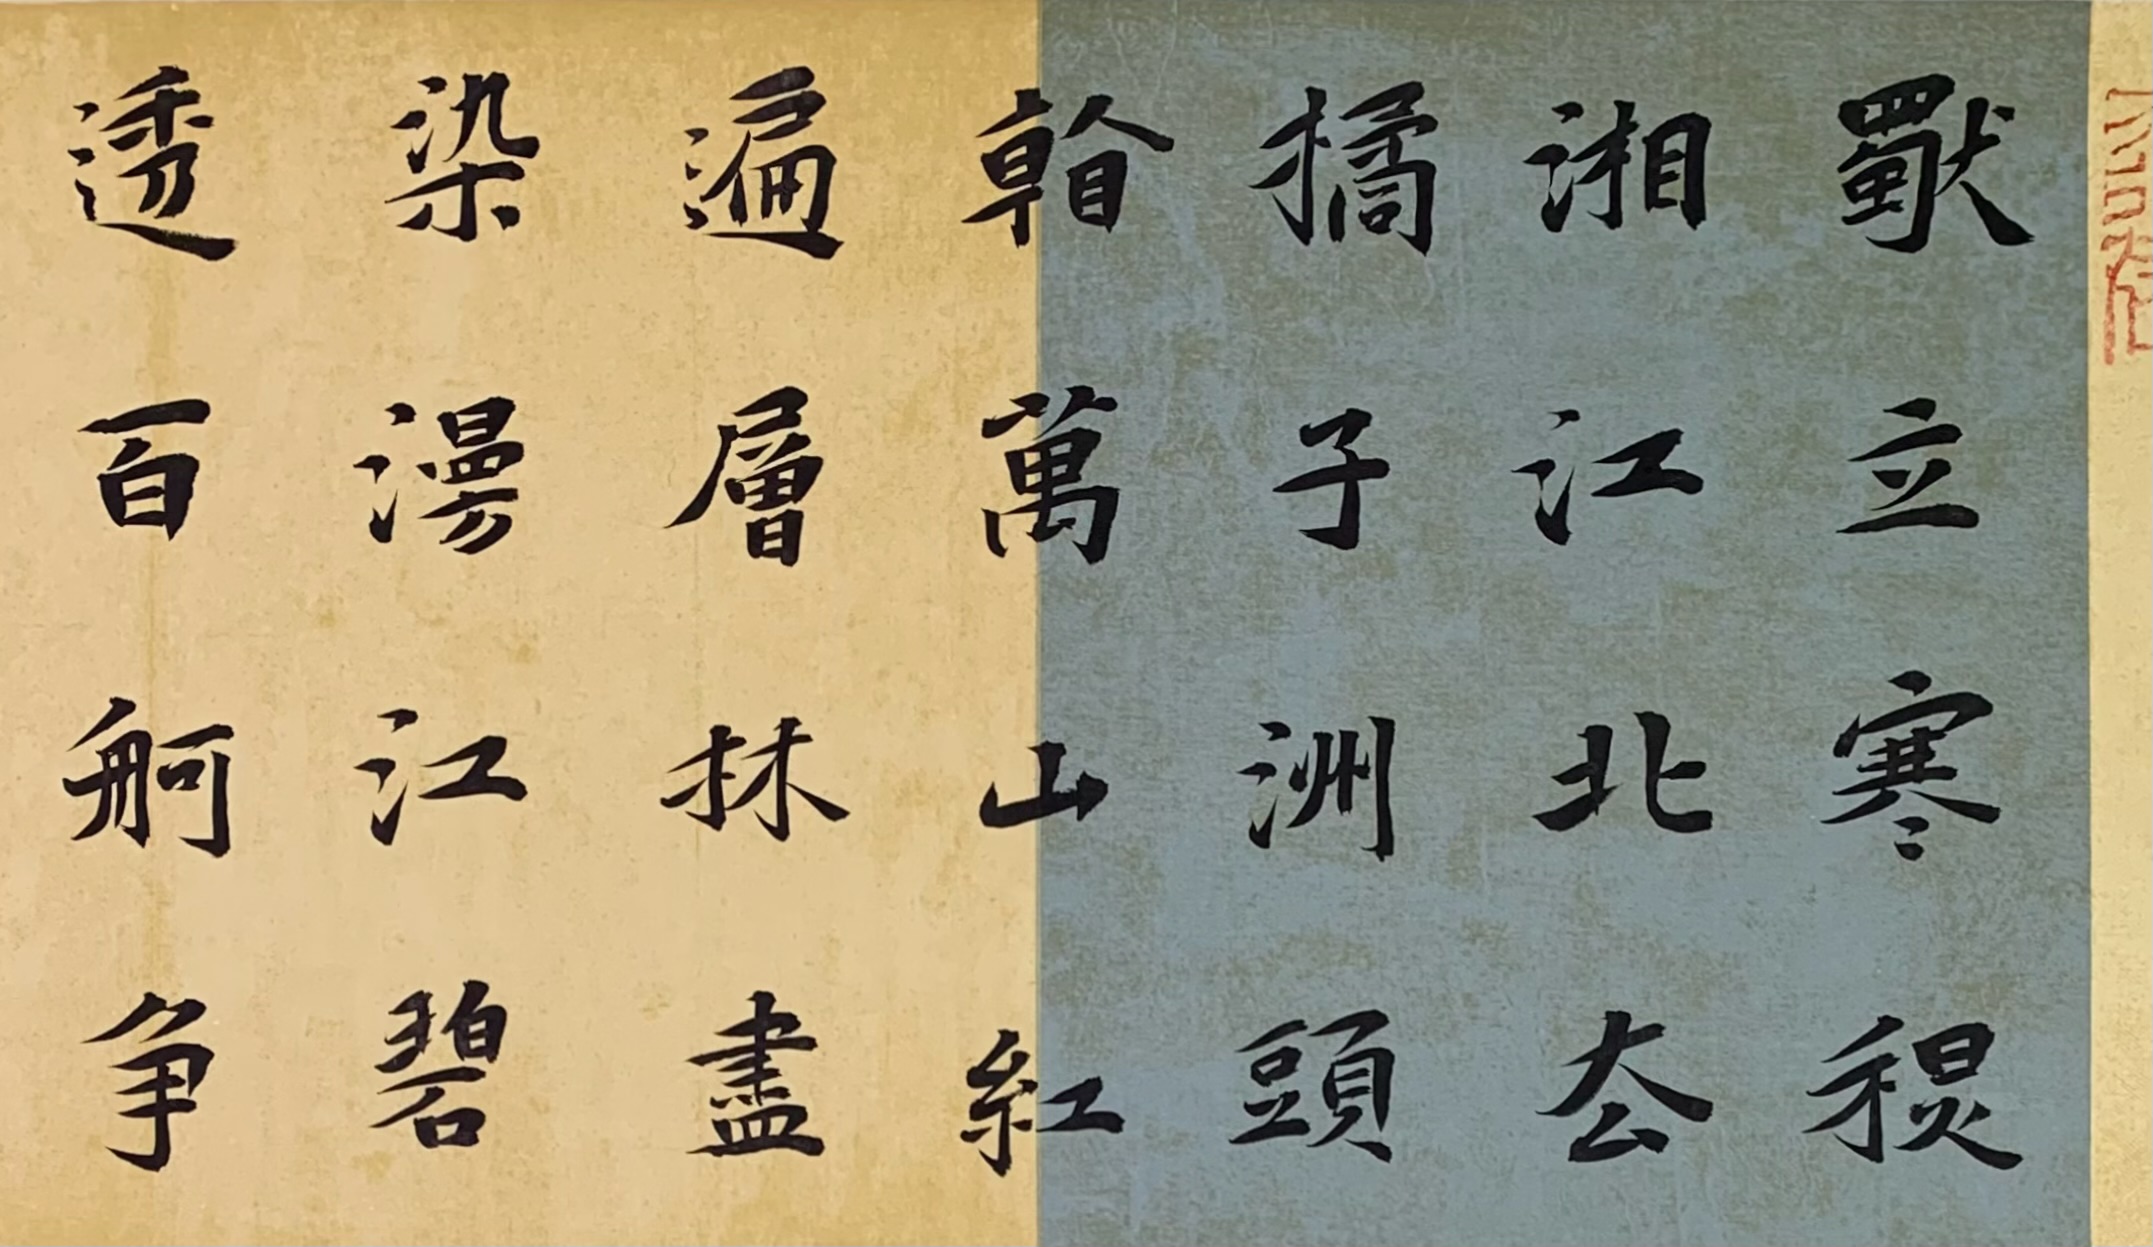 獨立寒秋
湘江北去
橘子洲頭
看萬山紅
遍層林盡
染漫江碧
透百舸争